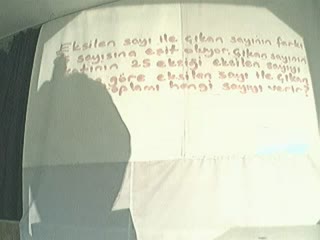 Eksilen sayı ile çıkan sayının farkı
sayısına eşit oluyor. Çıkan sayının
katının 25 eksiği eksilen sayıyı
göre eksilen sayı ile çıkan
toplamı hangi sayıyı verir?